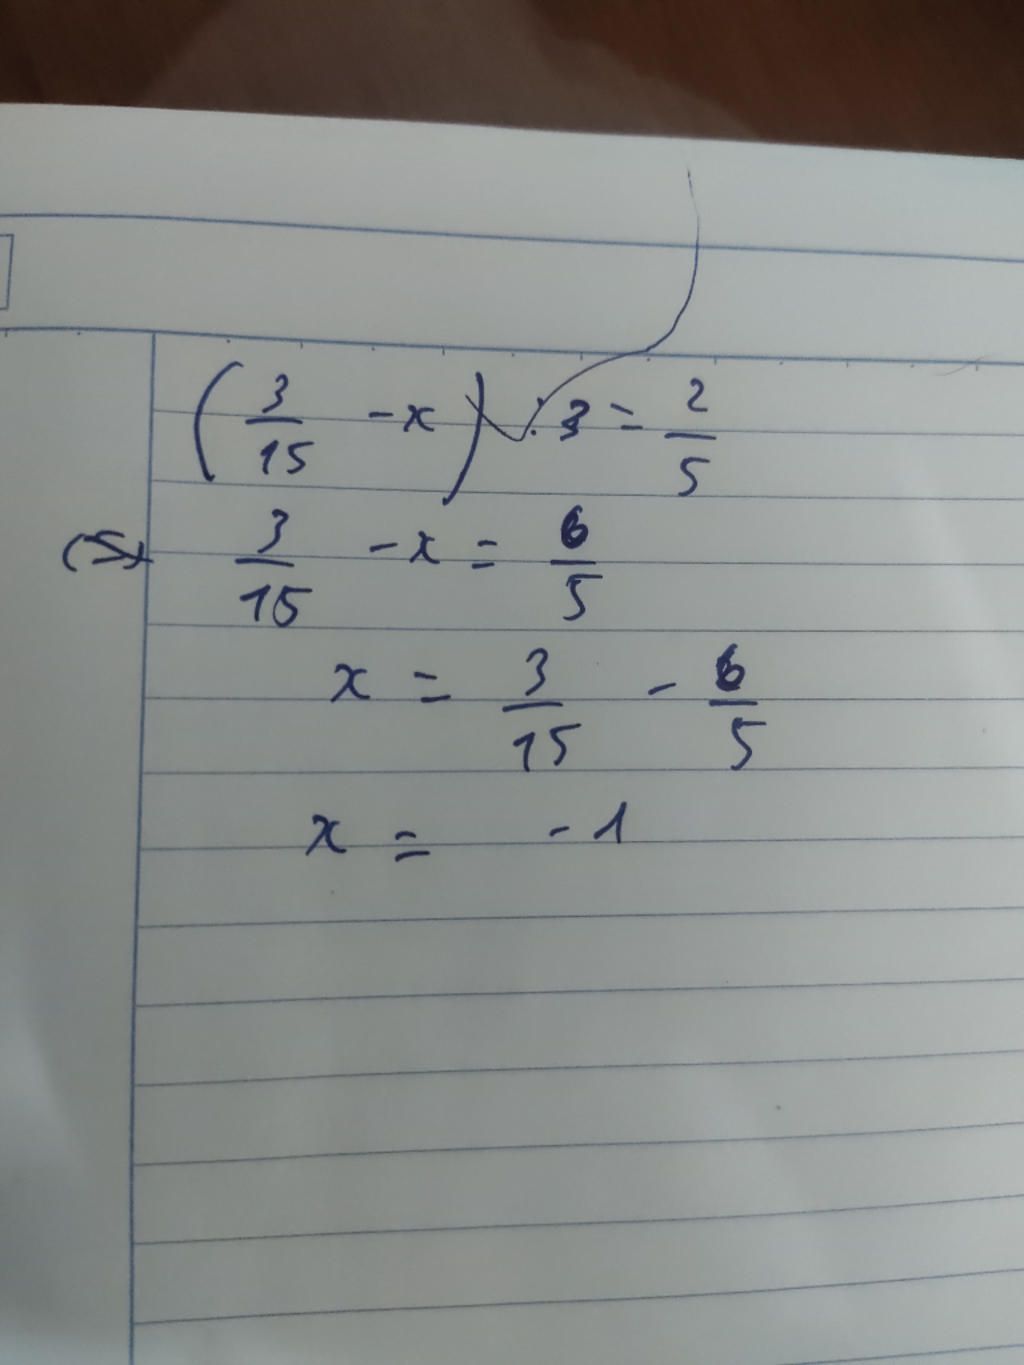 (3/15 - x) : 3 = 2/5
(5) 3/15 - x = 6/5
x = 3/15 - 6/5
x = - 1